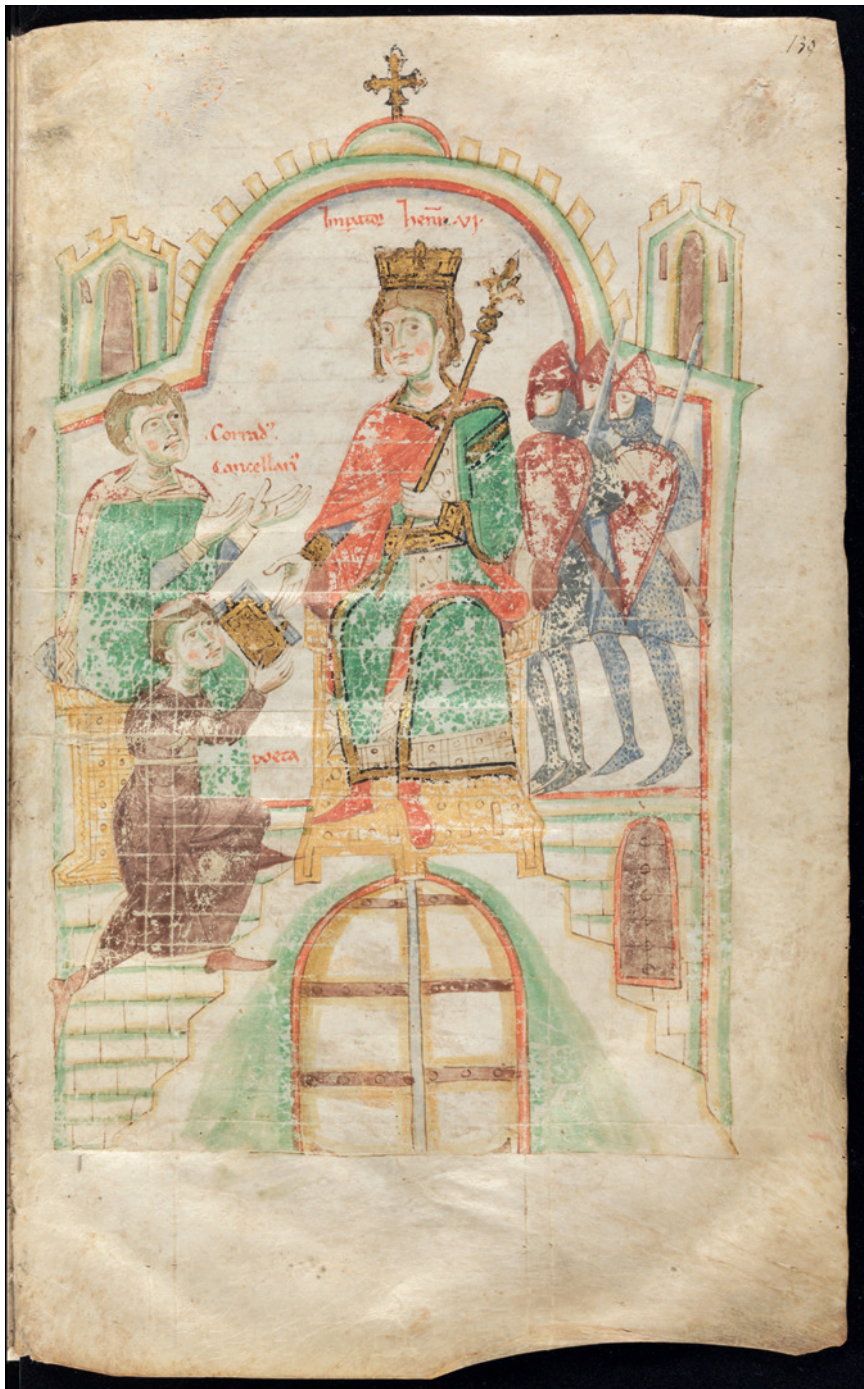 139
Imperator henric VI.
.Corrad9.
Cancellari9
poeta